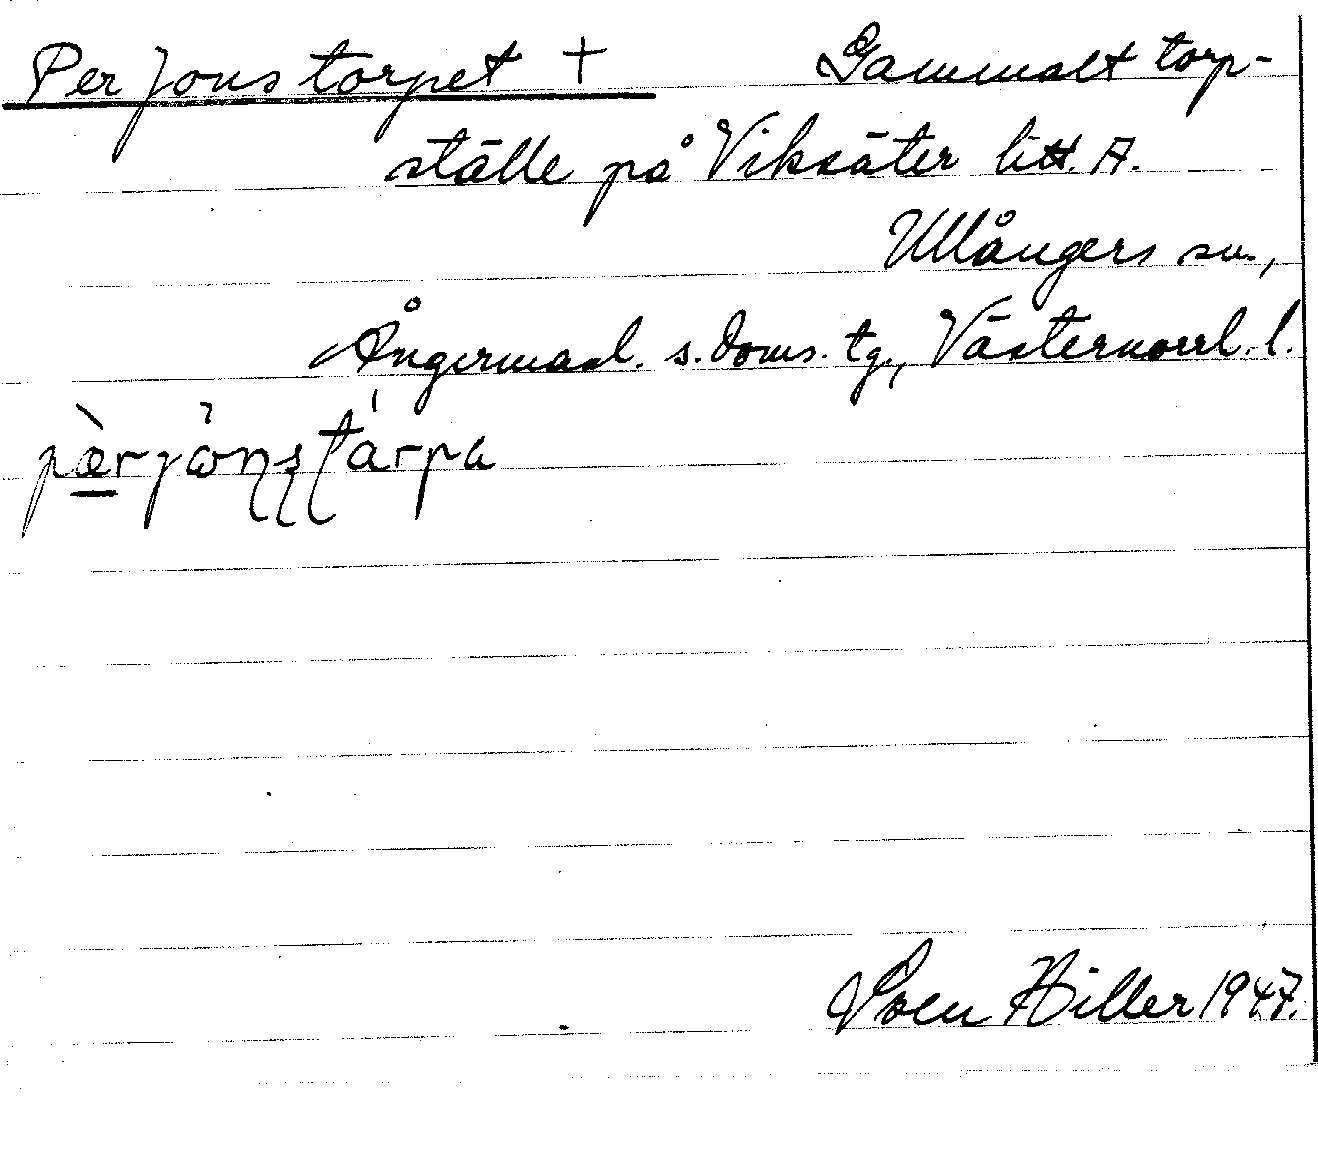 Per Jonstorpet + Gammalt torp-
ställe på Viksäter litt. A.
Ullångers sn.,
Ångermanl. s. doms. tg., Västernorrl. l.
Sven Hiller 1947.